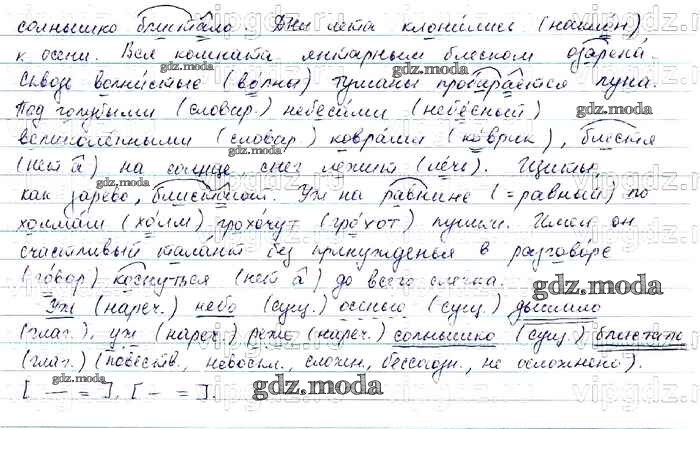 солнышко блистало. Дни лета клонились (наклон)
к осени. Вся комната янтарным блеском озарена.
Сквозь волнистые (волны) туманы пробирается луна.
Под голубыми (словар.) небесами (небесный)
великолепными (словар.) коврами (коврик), блестя
(нет а) на солнце снег лежит (лечь). Щиты,
как зарево, блистают. Уж на равнине (=равный) по
холмам (холм) грохочут (грохот) пушки. Имел он
счастливый талант без принужденья в разговоре
(говор) коснуться (нет а) до всего слегка.
Уж (нареч.) небо (сущ.) осенью (сущ.) дышало
(глаг.), уж (нареч.) реже (нареч.) солнышко (сущ.) блистало
(глаг.) (повеств., невоскл., сложн., бессоюзн., не осложнено).
[ — = ], [ — = ].
gdz.moda
vipgdz.ru